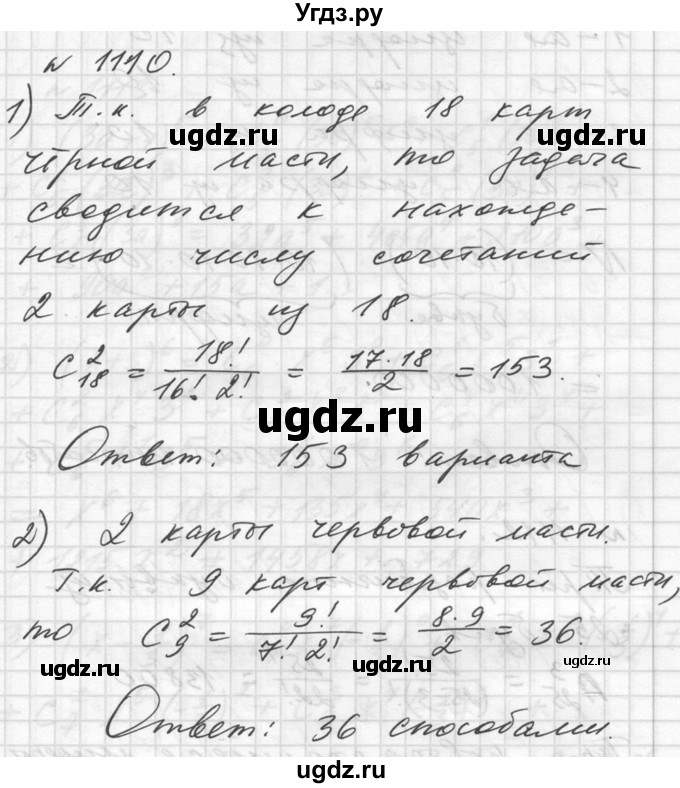 Угдз.ру
№ 1110.
1) Т.к. в колоде 18 карт
ugdz.ru ugdz.ru
чёрной масти, то задача
сводится к нахожде-
нию числу сочетаний
2 карты из 18.
C₁₈² = 18!/(16! 2!) = (17·18)/2 = 153.
ugdz.ru
Ответ: 153 варианта
2) 2 карты червовой масти.
Т.к. 9 карт червовой масти,
то C₉² = 9!/(7! 2!) = (8·9)/2 = 36.
ugdz.ru ugdz.ru ugdz.ru
Ответ: 36 способами.
ugdz.ru